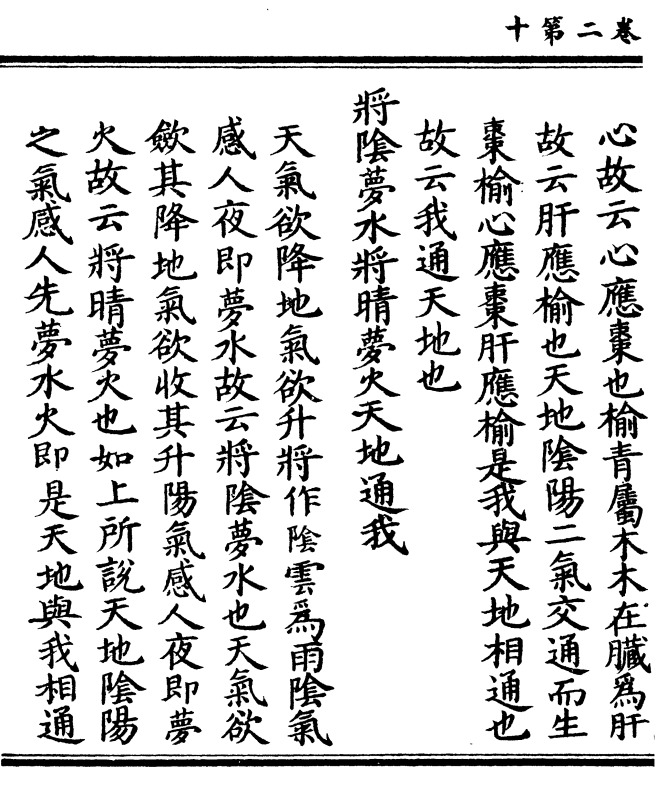 卷二第十
心故云心應棗也榆青屬木木在臟爲肝
故云肝應榆也天地陰陽二氣交通而生
棗榆心應棗肝應榆是我與天地相通也
故云我通天地也
將陰夢水將晴夢火天地通我
天氣欲降地氣欲升將作陰雲爲雨陰氣
感人夜即夢水故云將陰夢水也天氣欲
斂其降地氣欲收其升陽氣感人夜即夢
火故云將晴夢火也如上所說天地陰陽
之氣感人先夢水火即是天地與我相通